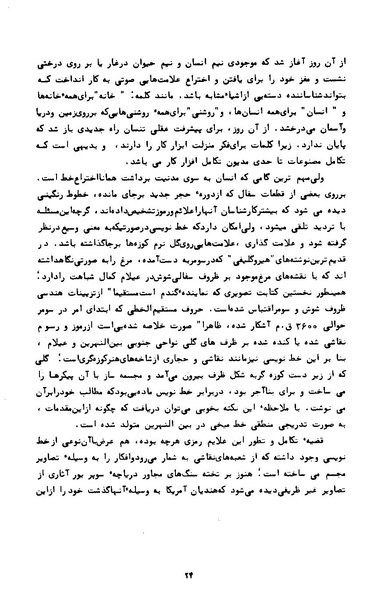 از آن روز آغاز شد که موجودی نیم انسان و نیم حیوان درغار یا بر روی درختی
نشست و مغز خود را برای یافتن و اختراع علامت‌هایی صوتی به کار انداخت کـه
بتواندشناساننده دسته‌یی ازاشیاء‌مشابه باشد. مانند کلمه: " خانه"برای‌همهٔ‌خانه‌ها
و " انسان " برای‌همه انسان‌ها، و"روشنی"برای‌همهٔ روشنی‌هایی‌که برروی‌زمین ودریا
وآسمان می‌درخشد. از آن روز، برای پیشرفت عقلی تنسان راه جدیدی باز شد که
پایان ندارد. زیرا کلمات برای‌فکر منزلت ابزار کار را دارند، و بدیهی اسـت کـه
تکامل مصنوعات تا حدی مدیون تکامل افزار کار می باشد.
ولی‌مهم ترین گامی که انسان به سوی مدنیت برداشت همانااختراع‌خط است.
برروی بعضی از قطعات سفال که ازدوره‌ٔ حجر جدید برجای مانده، خطوط رنگینی
دیده می شود که بیشترکارشناسان آنهارا‌علائم‌ورموزتشخیص‌داده‌اند، گرچه‌این‌مسئله
با تردید تلقی میشود، ولی‌امکان داردکه خط نویسی‌درصورتیکه‌به معنی وسیع‌درنظر
گرفته شود و علامت گذاری ، علامت‌هایی‌روی‌گل نرم کوزه‌ها برجاگذاشته باشد. در
قدیم‌ترین‌نوشته‌های "هیروگلیفی" که‌درسومر‌به دست‌آمده، مرغ را‌به صورتی‌نگاهداشته
اند که با نقشه‌های مرغ‌موجود بر ظروف سفالی‌شوش‌در عیلام کمال شباهت رادارد؛
همینطور نخستین کتابت تصویری که نماینده‌ٔ‌گندم است‌مستقیما" ازتزیینات هندسی
ظروف شوش و سومراقتباس شده‌است. حروف مستقیم‌الخطی که ابتدای امر در سومر
حوالی ۳۶۰۰ ق.م آشکار شده، ظاهرا" صورت خلاصه شده‌یی است ازرموز و رسـوم
نقاشی شده یا کنده شده بر ظرف های گلی نواحی جنوبی بین‌النهرین و عیلام ،
بنا بر این خط نویسی نیزمانند نقاشی و حجاری ازشاخه‌های‌هنرکوزه‌گری است؛ گلی
که از زیر دست کوزه گربه شکل ظرف بیرون می‌آمد و مجسمه ساز با آن پیکرها را
می ساخت و برای بناآجر بود، دربرابر خط نویس ماده‌یی‌بودکه مطالب خودرابرآن
می نوشت. با ملاحظه‌ٔ این نکته بخوبی می‌توان دریافت که چگونه ازاین‌مقدمات ،
به صورت تدریجی منطقی خط میخی در بین النهرین متولد شده است.
قضیه‌ٔ تکامل و تطور این علایم رمزی هرچه بوده، هم عرض‌باآن‌نوعی ازخط
نویسی وجود داشته که از شعبه‌های‌نقاشی به شمار می‌رودوافکار را به وسیله‌ٔ تصاویر
مجسم می ساخته است؛ هنوز بر تخته سنگ‌های مجاور دریاچه‌ٔ سوپر یور آثاری از
تصاویر غیر ظریفی‌دیده می شودکه‌هندیان آمریکا به وسیله‌ٔ‌آنهاگذشت خود را ازاین
۲۴